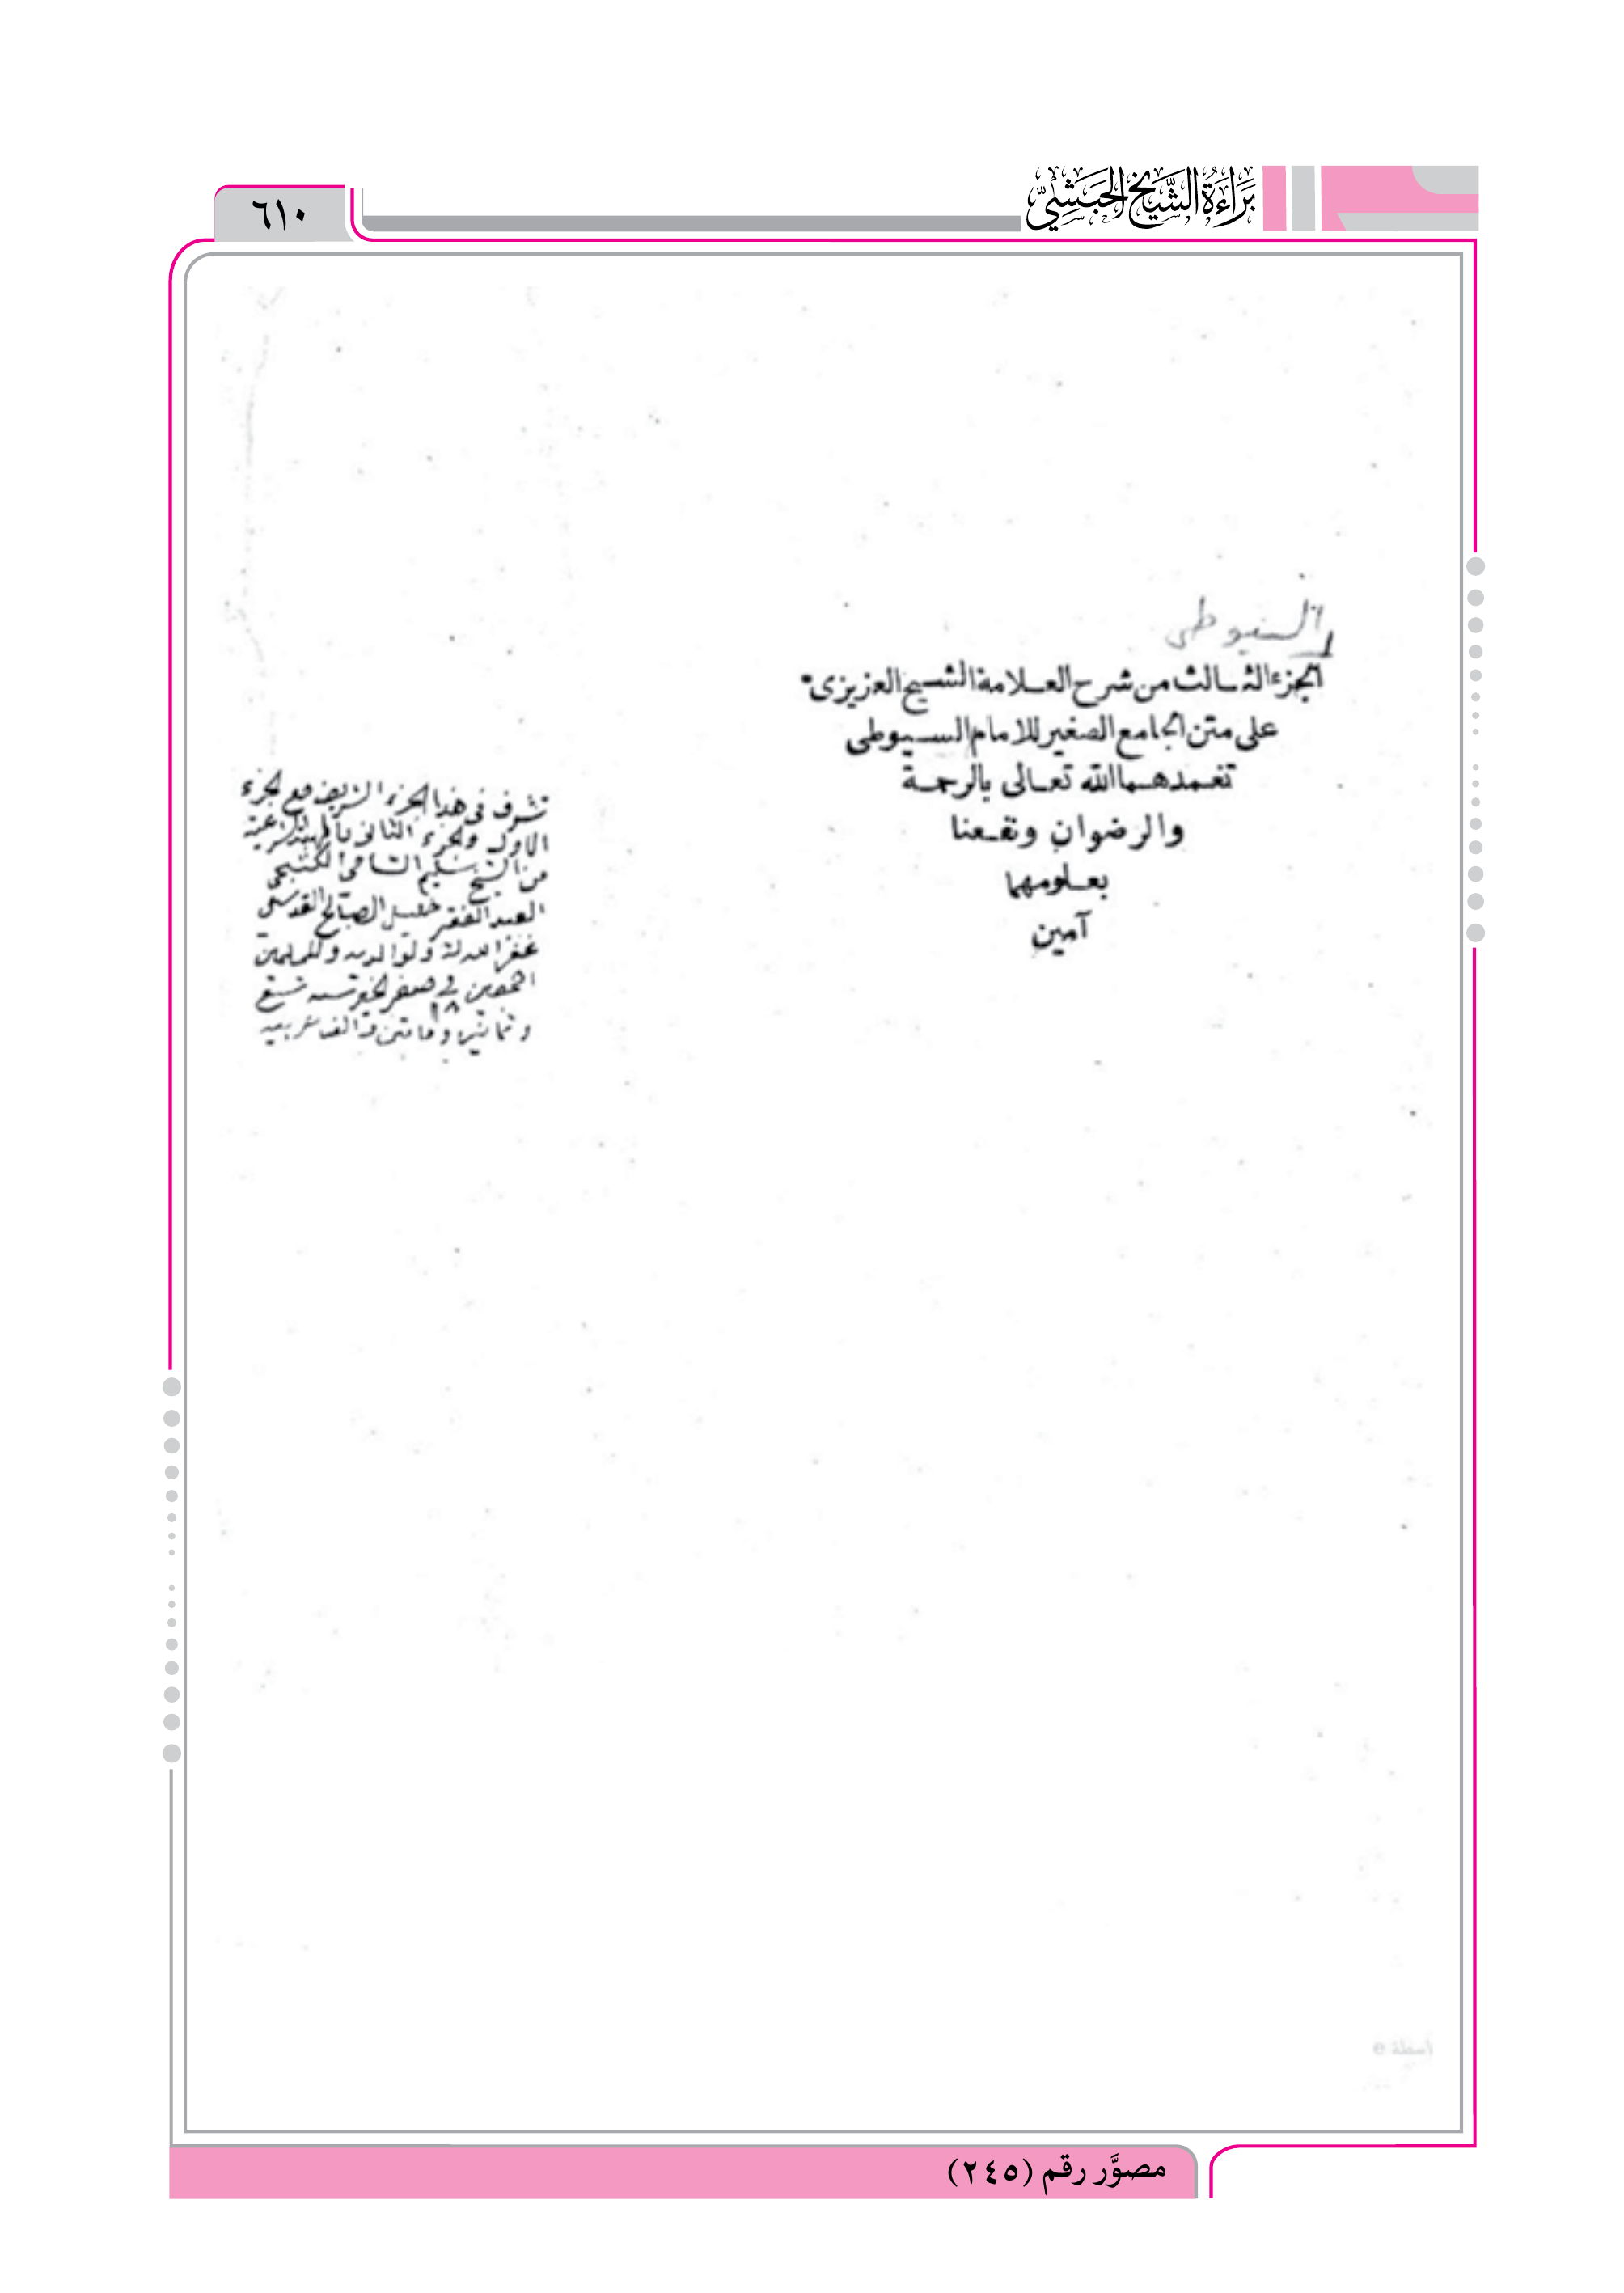 بَرَاءَةُ الشَّيْخِ الحَبَشِيِّ
٦١٠
السيوطى
الجزء الثالث من شرح العلامة الشيخ العزيزى
على متن الجامع الصغير للامام السيوطى
تغمدهما الله تعالى بالرحمة
والرضوان ونفعنا
بعلومهما
آمين
تشرف فى هذا الجزء الشريف مع الجزء
الاول والجزء الثانى
من الشيخ سليم الشامى الكتبجى
العبد الفقير خليل الصالح القدسى
غفر الله له ولوالديه وللمسلمين
اجمعين فى صفر الخير سنه تسع
وثمانين ومايتين والف
مصوَّر رقم (٢٤٥)